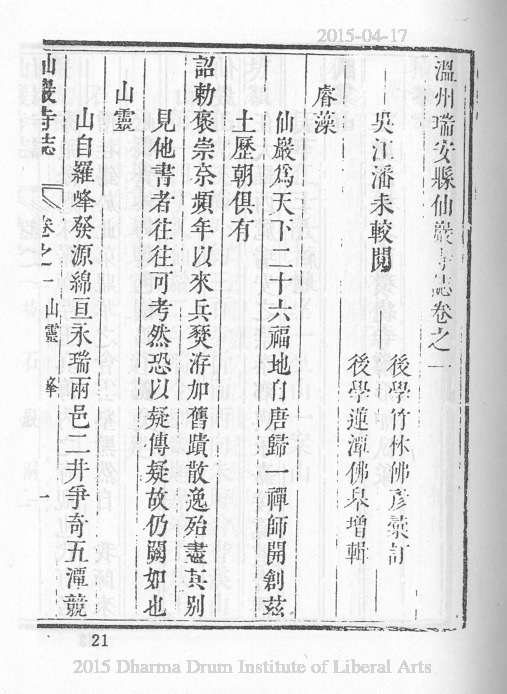 2015-04-17
溫州瑞安縣仙巖寺誌卷之一
後學竹林佛彥彙訂
吳江潘耒較閱
後學蓮潭佛皋增輯
睿藻
仙巖爲天下二十六福地自唐歸一禪師開創茲
土歷朝俱有
詔勅褒崇奈頻年以來兵燹洊加舊蹟散逸殆盡其別
見他書者往往可考然恐以疑傳疑故仍闕如也
山靈
山自羅峰發源綿亘永瑞兩邑二井爭奇五潭競
仙巖寺誌 卷之一 山靈 峰 一
21
2015 Dharma Drum Institute of Liberal Arts